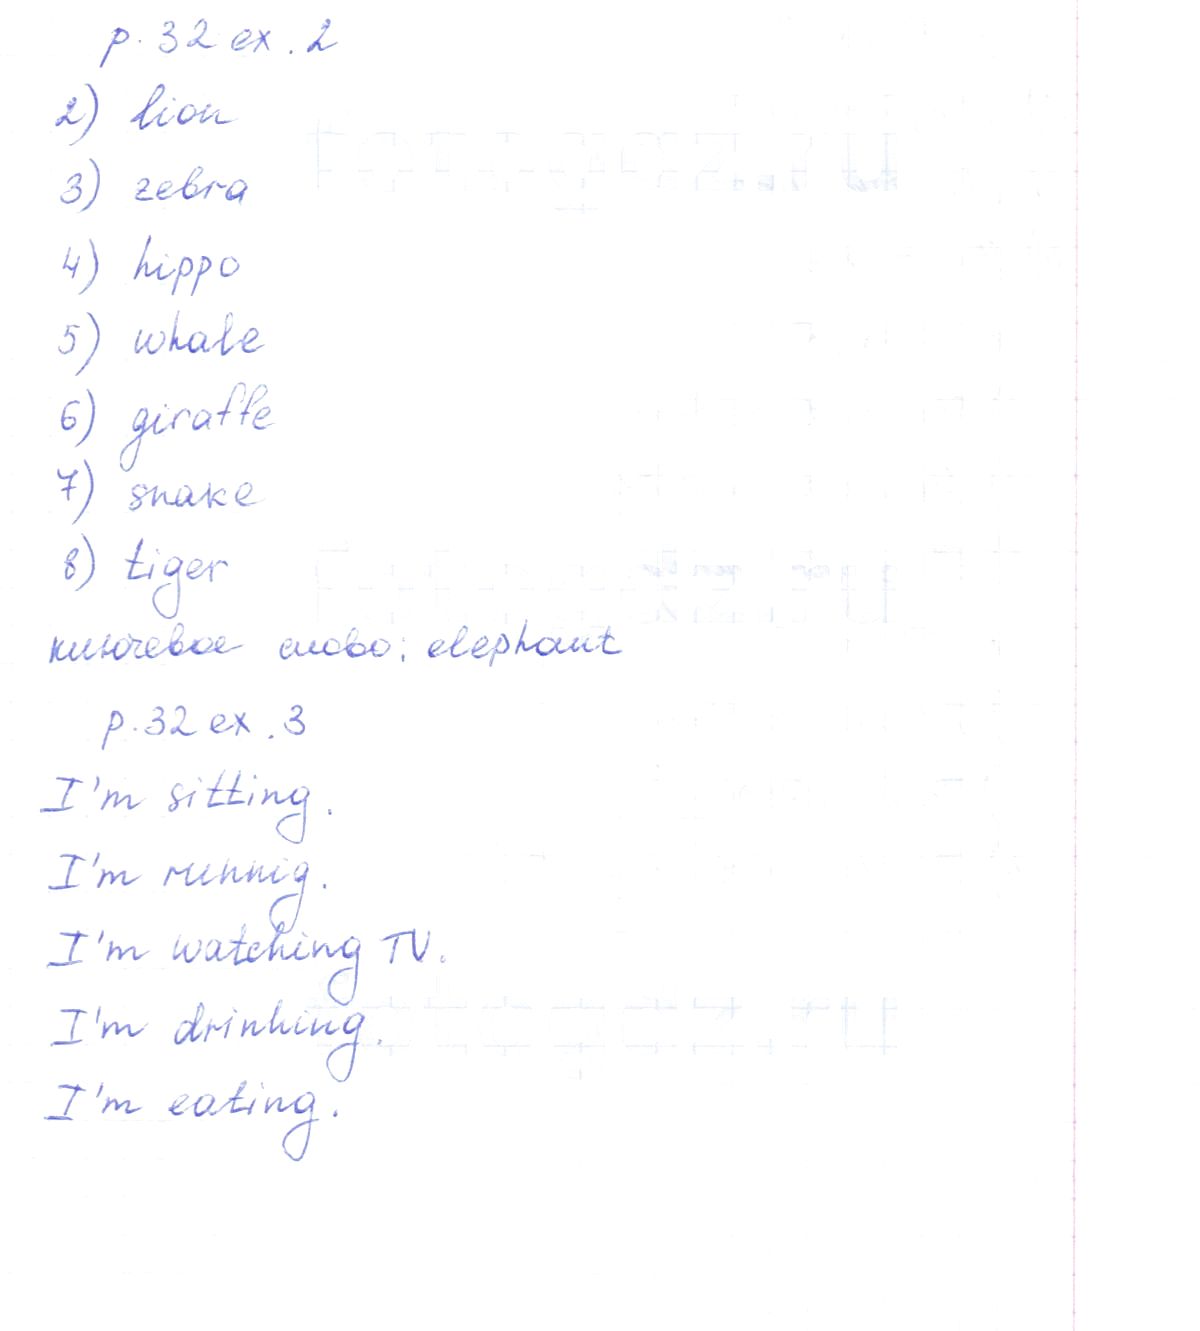 p. 32 ex. 2
2) lion
3) zebra
4) hippo
5) whale
6) giraffe
7) snake
8) tiger
ключевое слово: elephant
p. 32 ex. 3
I'm sitting.
I'm runnig.
I'm watching TV.
I'm drinking.
I'm eating.